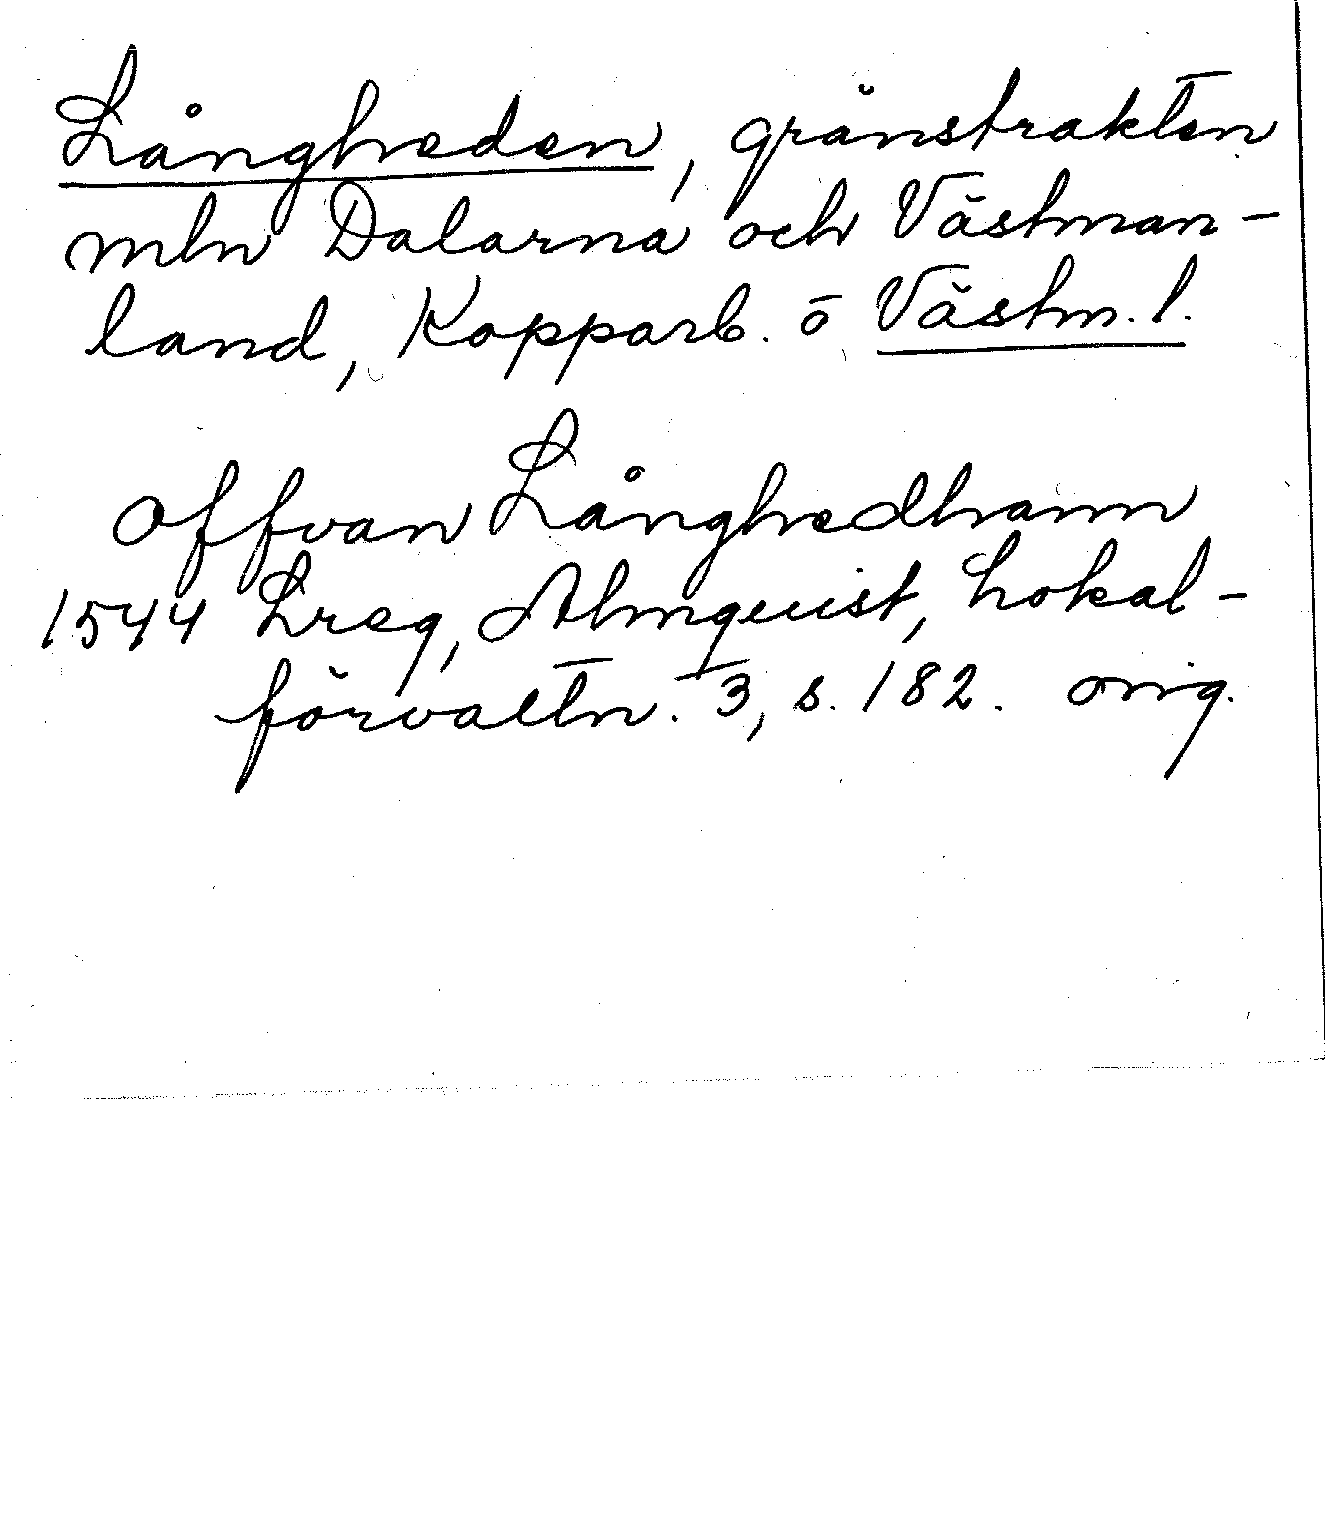 Långheden, gränstrakten
mln Dalarna och Västman-
land, Kopparb. o Västm. l.
offvan Långhedhann
1544 Lreg, Almquist, Lokal-
förvaltn. 3, s. 182. orig.